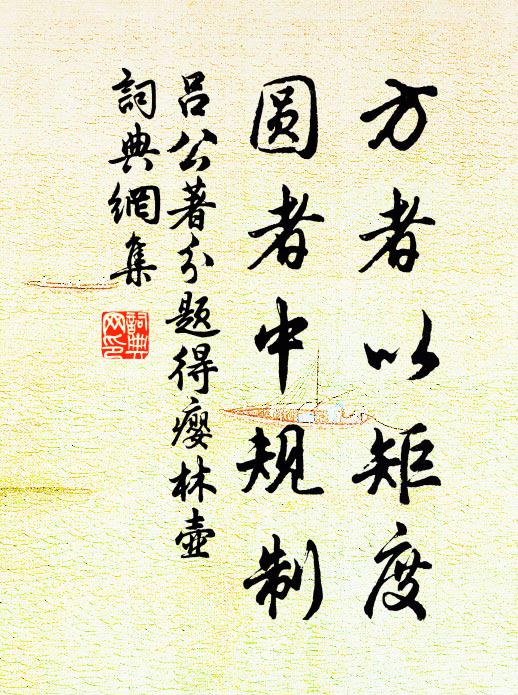 方者以矩度
圆者中規制
呂公著分题得癭林壺
詞典網集
詞典网印